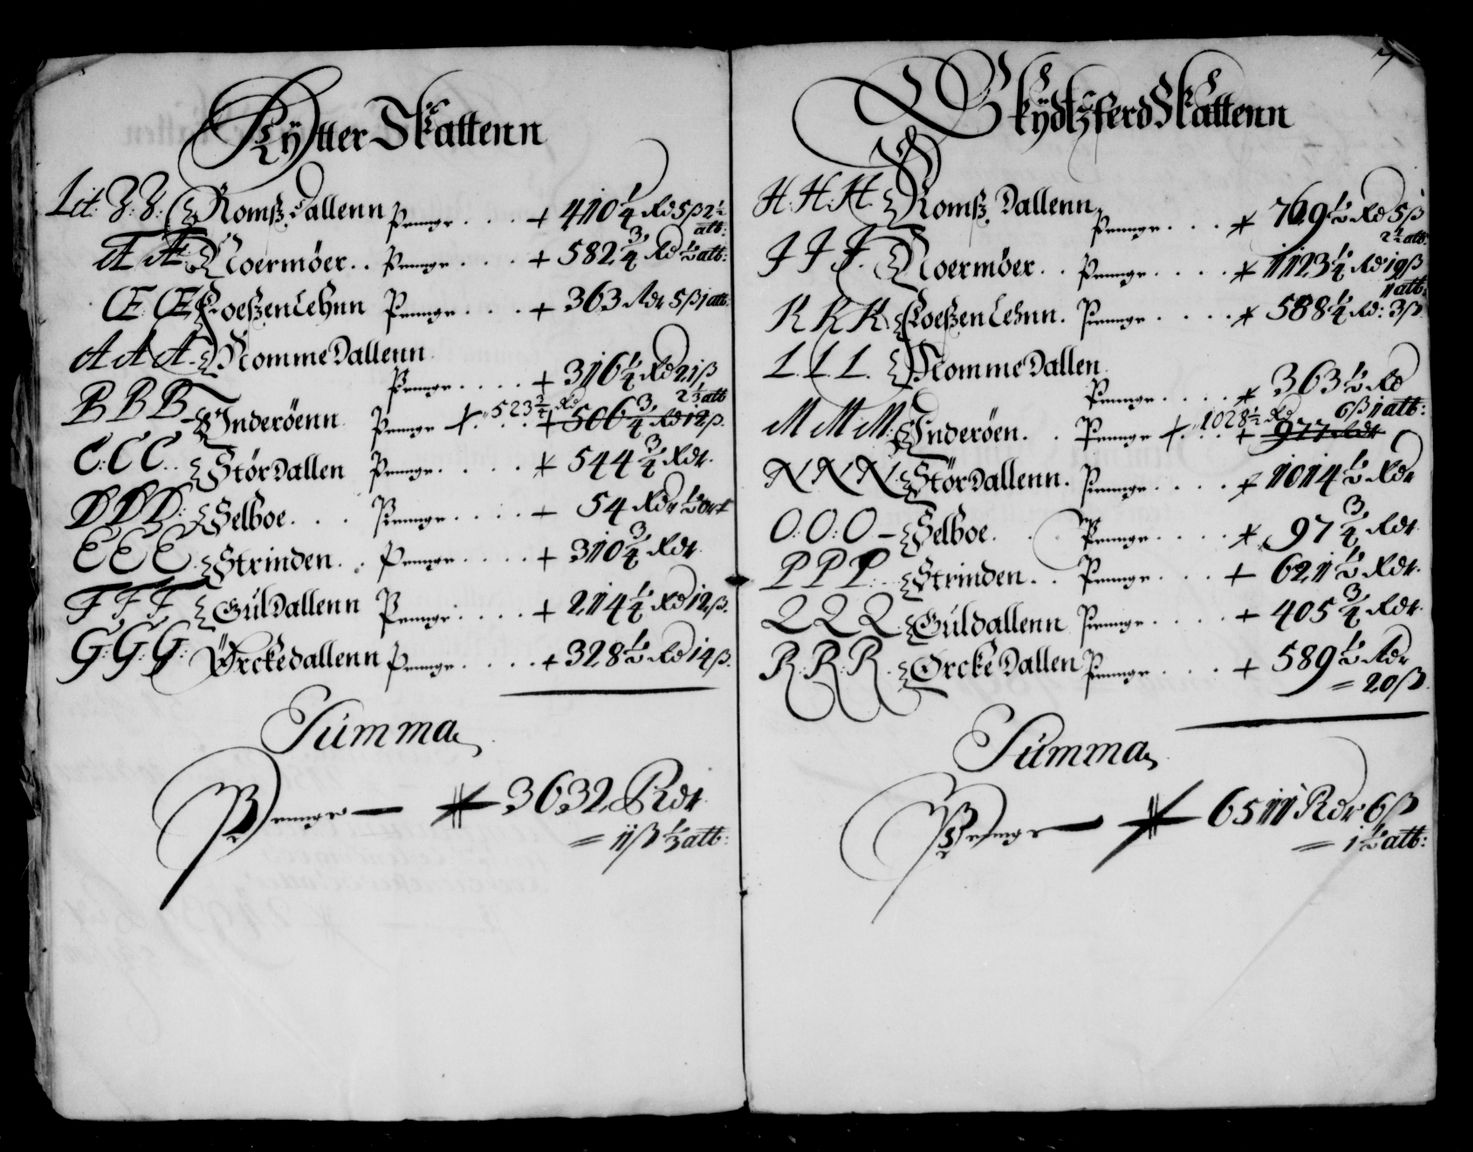 Rÿtter Skattenn
Lit: Z: Z: Romßdallenn Penngr .... + 410 1/4 Rd 5 ß 2 1/2 alb:
Æ Æ: Noermöer .. Penngr .... + 582 3/4 Rd 1/2 alb:
Œ: Œ Foeßen Lehnn Penngr .... + 363 Rdr 5 ß 1 alb:
A A A: Nomme Dallenn
Penngr .... + 316 1/4 Rd 21 ß 2 1/2 alb
B B B Inderöenn Penngr +. 523 3/4 Rd .. + 506 3/4 Rd 12 ß.
C: C C: Stör Dallen Penngr .... + 544 3/4 Rdr.
D D D: Selboe .... Penngr .... + 54 Rdr 1/2 ort
E E E: Strinden .. Penngr .... + 310 3/4 Rdr.
F F F Güldallenn Penngr .... + 214 1/2 Rd 12 ß.
G: G: G: Örckedallenn Penngr .... + 328 1/2 Rd 14 ß.
Summa
Penngr — 3632 Rdr
= 11 ß 1/2 alb:
7
Skÿdtzferd Skattenn
H: H: H: Romß Dallenn
Penngr .... + 769 1/2 Rd 5 ß
2 1/2 alb:
J J J. Noermöer .. Penngr .... + 1123 1/4 Rd 19 ß
1 alb:
K K K Foeßen Lehnn. Penngr .... + 588 1/2 Rd: 3 ß
L L L. Nomme Dallen
Penngr .... + 363 1/2 Rd
6 ß 1 alb:
M M M: Inderöen .. Penngr +. 1028 1/2 Rd .. + 977 Rdr
N N N Stör Dallenn. Penngr .... + 1014 1/2 Rdr
O: O: O — Selboe .. Penngr .... + 97 3/4 Rdr.
P P P: Strinden .. Penngr .... + 621 1/2 Rdr.
Q Q Q Güldallenn Penngr .... + 405 3/4 Rdr.
R: R: R. Örcke Dallen Penngr .... + 589 1/2 Rdr
= 20 ß.
Summa
Penngr — 6511 Rdr 6 ß
= 1 1/2 alb: